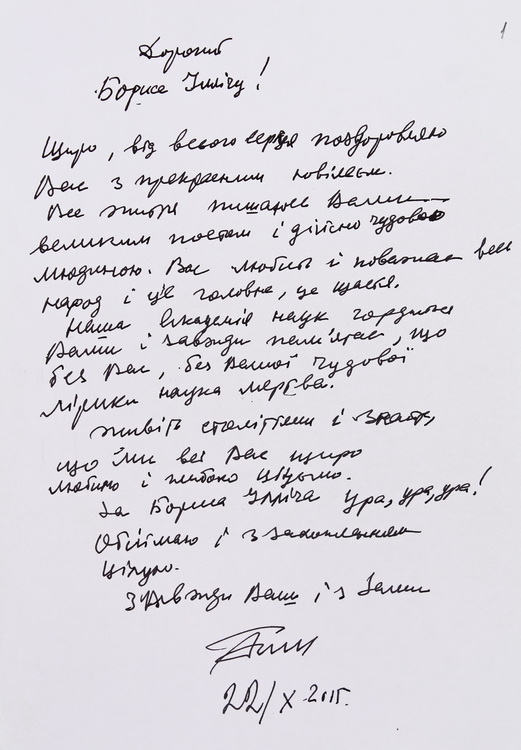 1
Дорогий
Борисе Ілліču!
Щиро, від всього серця поздоровляю
Вас з прекрасним ювілеєм.
Все життя пишаюся Вами –
великим поетом і дійсно чудовою
людиною. Вас любить і поважає весь
народ і це головне, це щастя.
Наша Академія наук гордиться
Вами і завжди пам'ятає, що
без Вас, без Вашої чудової
лірики наука мертва.
Живіть століттями і знайте,
що ми всі Вас щиро
любимо і глибоко цінуємо.
За Бориса Ілліча ура, ура, ура!
Обіймаю і з захопленням
цілую.
Завжди Ваш і з Вами
22/X 2015.